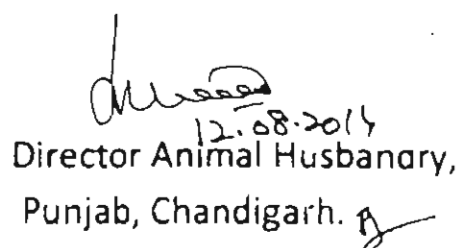 12.08.2014
Director Animal Husbanary,
Punjab, Chandigarh.